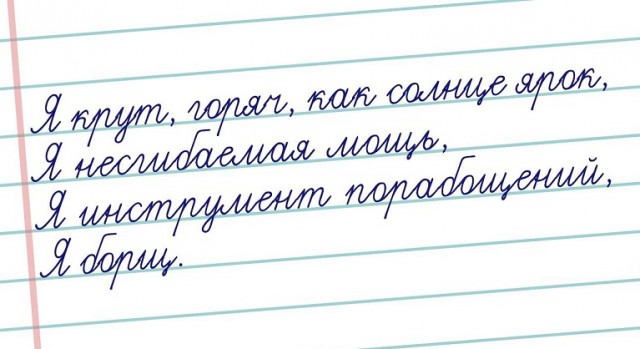 Я крут, горяч, как солнце ярок,
Я несгибаемая мощь,
Я инструмент порабощений,
Я борщ.